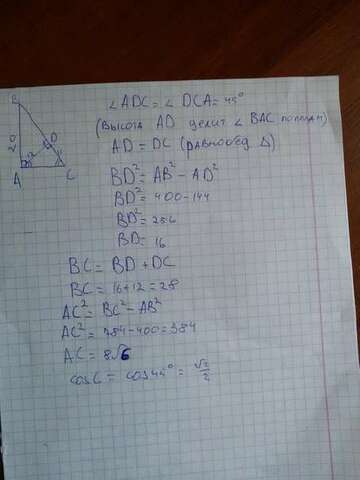 ∠ADC = ∠DCA = 45°
(Высота AD делит ∠BAC пополам)
AD = DC (равнобед Δ)
BD² = AB² - AD²
BD² = 400 - 144
BD² = 256
BD = 16
BC = BD + DC
BC = 16 + 12 = 28
AC² = BC² - AB²
AC² = 784 - 400 = 384
AC = 8√6
cosC = cos45° = √2/2
B
20
D
12
A
C